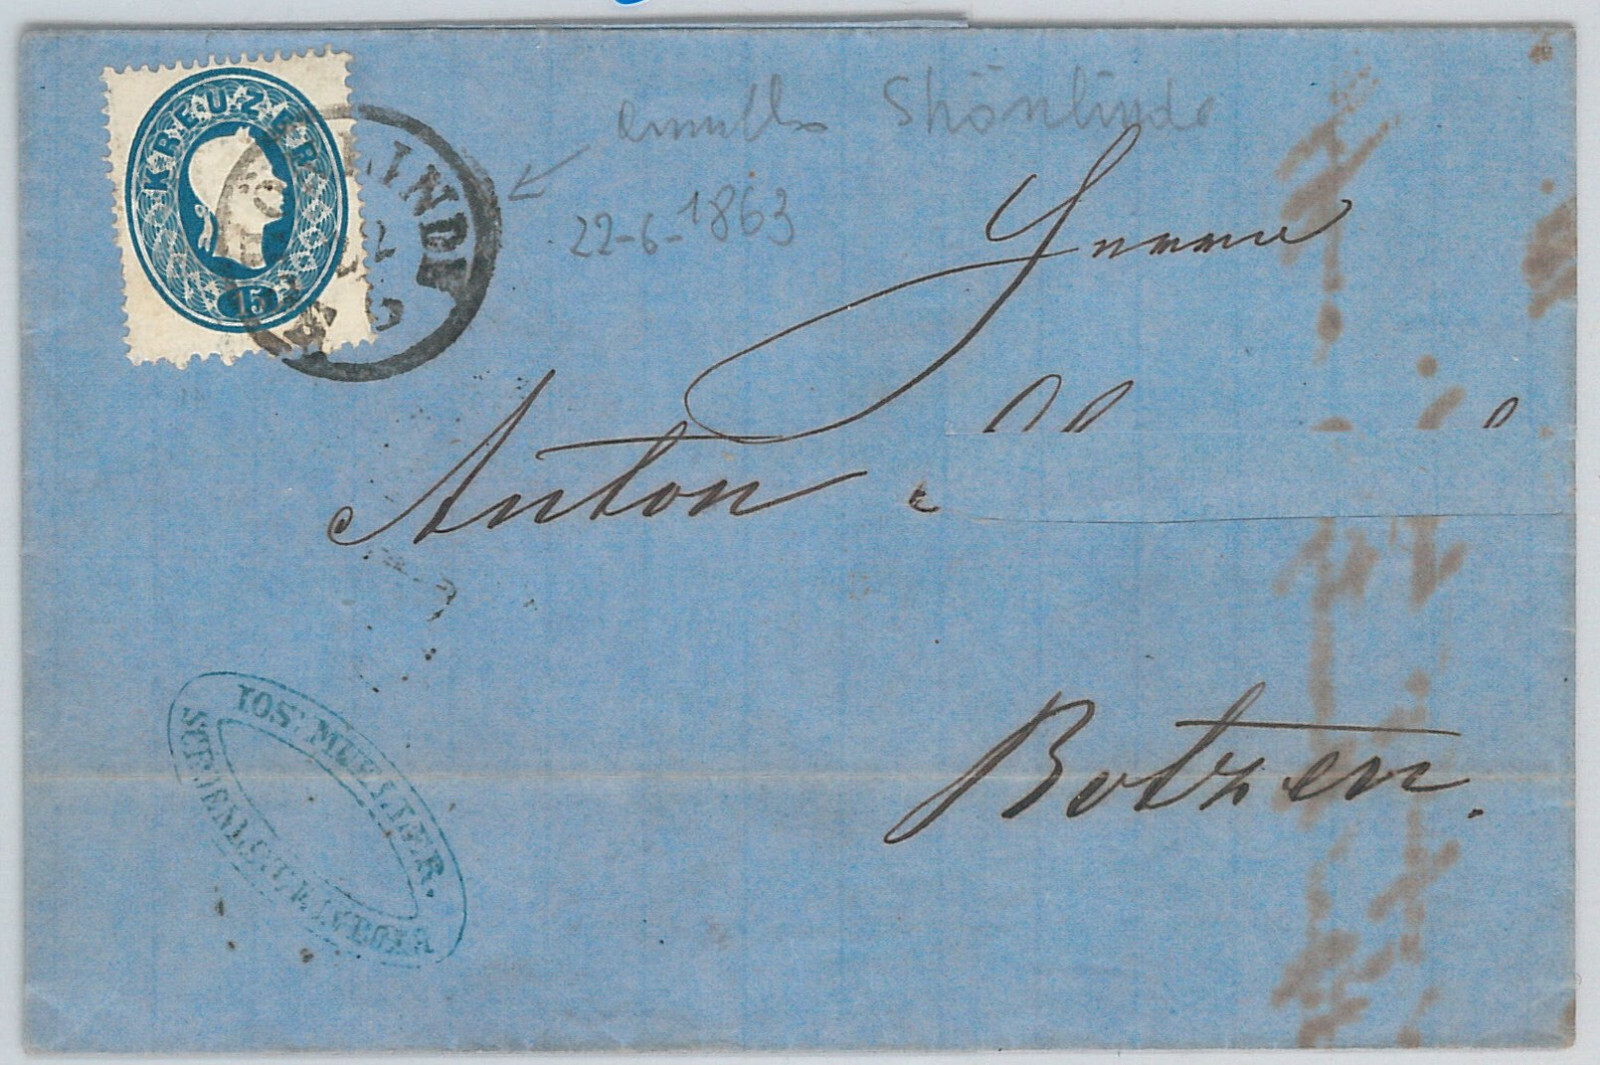 KREUZER
15
LINDE
22
6
annullo Shönlinde
22-6-1863
Herrn
Anton
Botzen.
IOS: MUELLER.